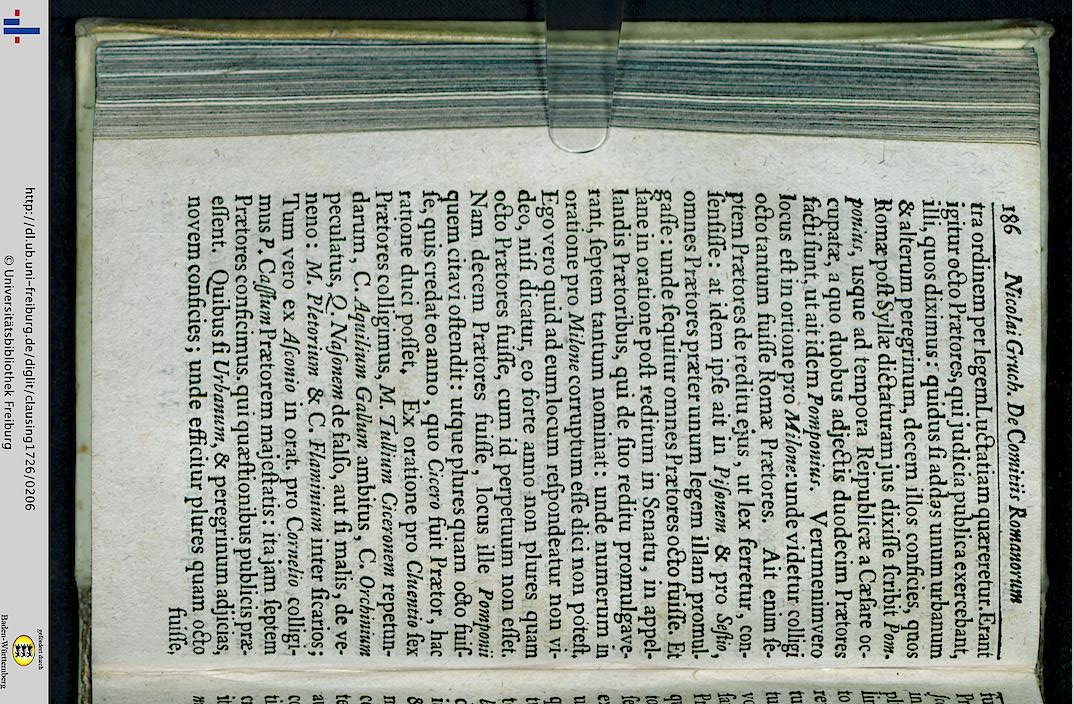 186 Nicolai Gruch. De Comitiis Romanorum
tra ordinem per legem Luctatiam quæreretur. Erant
igitur octo Prætores, qui judicia publica exercebant,
illi, quos diximus: quidus si addas unum urbanum
& alterum peregrinum, decem illos conficies, quos
Romæ post Syllæ dictaturam jus dixisse scribit Pom-
ponius, usque ad tempora Reipublicæ a Cæsare oc-
cupatæ, a quo duobus adjectis duodecim Prætores
facti sunt, ut ait idem Pomponius. Verumenimvero
locus est in ortione pro Milone: unde videtur colligi
octo tantum fuisse Romæ Prætores. Ait enim se-
ptem Prætores de reditu ejus, ut lex ferretur, con-
sensisse: at idem ipse ait in Pisonem & pro Sestio,
omnes Prætores præter unum legem illam promul-
gasse: unde sequitur omnes Prætores octo fuisse. Et
sane in oratione post reditum in Senatu, in appel-
landis Prætoribus, qui de suo reditu promulgave-
rant, septem tantum nominat: unde numerum in
oratione pro Milone corruptum esse dici non potest,
Ego vero quid ad eum locum respondeatur non vi-
deo, nisi dicatur, eo forte anno non plures quam
octo Prætores fuisse, cum id perpetuum non esset.
Nam decem Prætores fuisse, locus ille Pomponii
quem citavi ostendit: utque plures quam octo fuis-
se, quis credat eo anno, quo Cicero fuit Prætor, hac
ratrone duci posset, Ex oratione pro Cluentio sex
Prætores colligimus, M. Tullium Ciceronem repetun-
darum, C. Aquilium Gallum ambitus, C. Orchinium
peculatus, Q. Nasonem de falso, aut si malis, de ve-
neno: M. Pletorium & C. Flaminium inter sicarios;
Tum vero ex Asconio in orat. pro Cornelio colligi-
mus P. Cassium Prætorem majestatis: ita jam septem
Prætores conficimus, qui quæstionibus publicis præ-
essent. Quibus si Urbanum, & peregrinum adjicias,
novem conficies; unde efficitur plures quam octo
fuisse,
http://dl.ub.uni-freiburg.de/diglit/clausing1726/0206
© Universitätsbibliothek Freiburg
gefördert durch
Baden-Württemberg